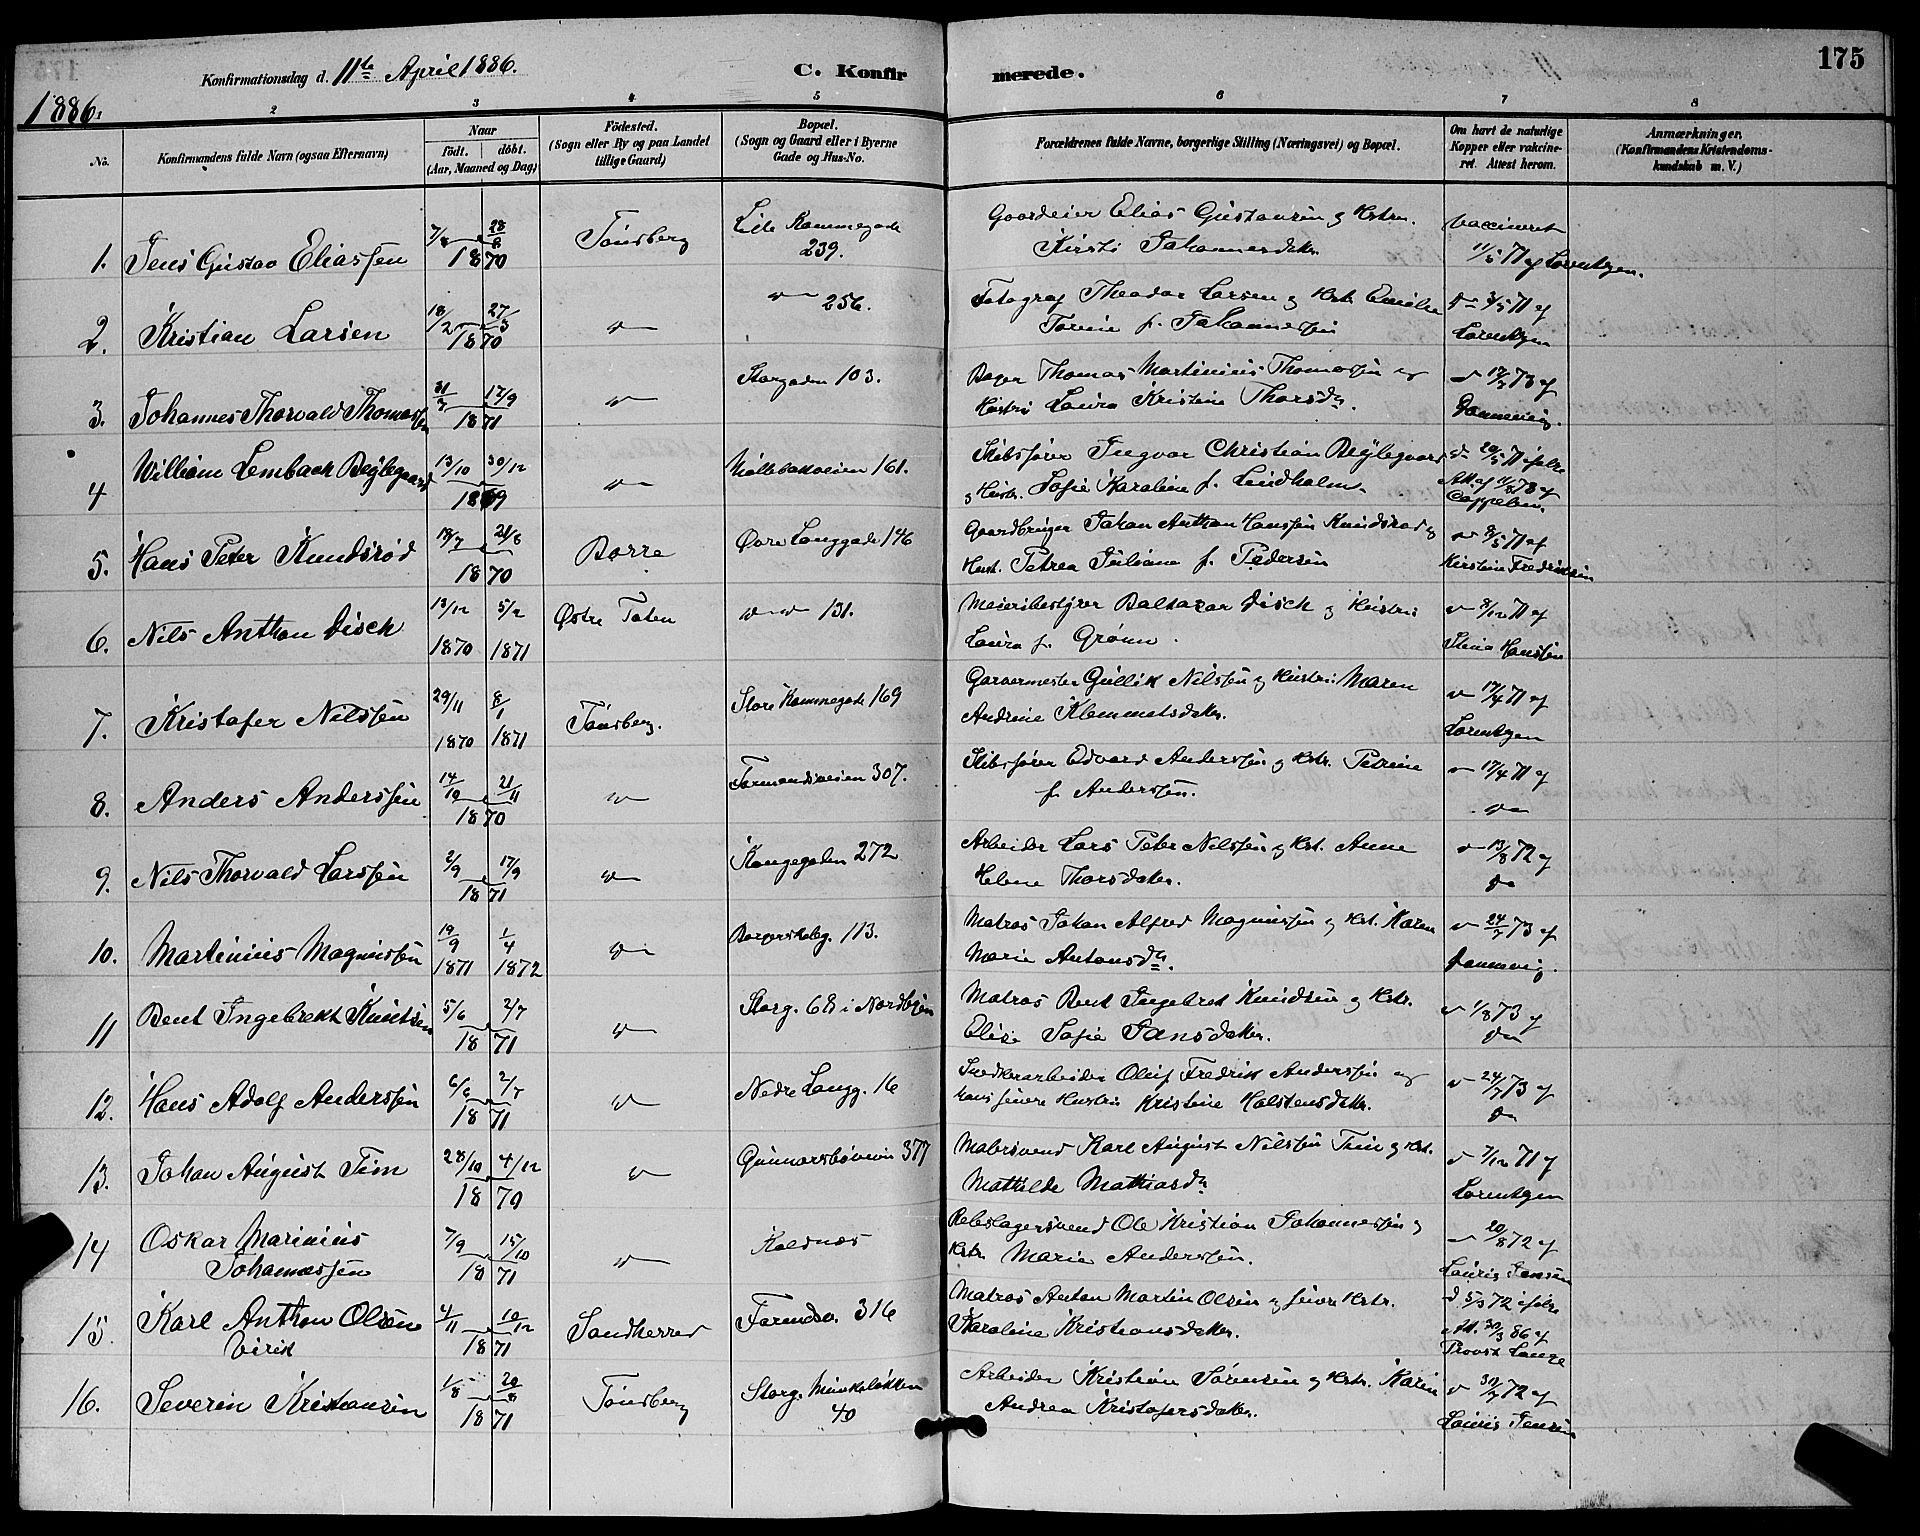 175
Konfirmationsdag d. 11te April 1886.
C. Konfirmerede.
1886.
2 3 4 5 6 7 8
No.
Konfirmandens fulde Navn (ogsaa Efternavn)
Naar
født. døbt.
(Aar, Maaned og Dag)
Fødested.
(Sogn eller By og paa Landet
tillige Gaard)
Bopæl.
(Sogn og Gaard eller i Byerne
Gade og Hus-No.
Forældrenes fulde Navne, borgerlige Stilling (Næringsvei) og Bopæl.
Om havt de naturlige
Kopper eller vakcine-
ret. Attest herom.
Anmærkninger.
(Konfirmandens Kristendoms-
kundskab m. V.)
1. Jens Gustav Eliassen 7/8 28/8 1870 Tønsberg Lille Rammegade 239.
Gaardeier Elias Gustavsen og Hstru.
Kirsti Johannesdatter
Vaccineret
11/5 71 af Lorentzen.
2. Kristian Larsen 18/2 27/3 1870 " " 256.
Fotograf Theodor Larsen og Hst. Emilie
Torine f. Johannessen
" 3/5 71 af
Lorentzen
3. Johannes Thorvald Thomassen 31/7 17/9 1871 " Storgaden 103.
Bager Thomas Martinius Thomassen og
Hustru Laura Kristine Thorsdtr.
" 12/7 73 af
Dannevig.
4 William Lembach Bøylegaard 13/10 30/12 1869 " Møllebakveien 161.
Skibsfører Ingvar Christian Bøylegaard
og Hustr. Sofie Karoline f. Lindholm.
" 20/5 71 ifølge
Att. af 11/8 78 af
Cappelen.
5. Hans Peter Knudsrød 18/7 21/8 1870 Borre Øvre Langgade 146
Gaardbruger Johan Anthon Hanssen Knudsrød og
Hust. Petrea Juliane f. Pedersen
" 8/5 71 af
Kirstine Fredriksen
6. Nils Anthon Disch 13/12 1870 5/2 1871 Østre Toten " " 131.
Meieribestyrer Baltazar Disch og Hustru
Laura f. Grønn.
" 8/12 71 af
Stina Hanssen
7. Kristofer Nilssen 29/11 1870 8/1 1871 Tønsberg. Store Rammegade 169
Garvermester Gullik Nilssen og Hustru Maren
Andrine Klemmetsdatter.
" 17/4 71 af
Lorentzen
8. Anders Anderssen 14/10 21/11 1870 " Formandsveien 307.
Skibsfører Edvard Anderssen og Hstr. Petrine
f. Anderssen.
" 17/4 71 af
"
9. Nils Thorvald Larssen 2/9 17/9 1871 " Kongegaden 272
Arbeider Lars Peter Nilssen og Hst. Anne
Helene Thorsdatter.
" 13/8 72 af
Do
10. Martinius Magnussen 19/9 1871 1/4 1872 " Borgerskoleg. 113.
Matros Johan Alfred Magnussen og Hst. Karen
Marie Antonsdtr.
" 24/7 73 af
Dannevig.
11 Bent Ingebrekt Knutsen 5/6 2/7 1871 " Storg. 68 i Nordbyen
Matros Bent Ingebret Knudsen og Hstr.
Elise Sofie Jansdatter.
" 1/8 73 af
Do
12. Hans Adolf Anderssen 6/6 2/7 1871 " Nedre Langg. 16
Snedkerarbeider Oluf Fredrik Anderssen og
hans Hustru Kristine Holstensdatter.
" 24/7 73 af
Do
13. Johan August Tim 28/10 4/12 1870 " Gunnarsbøveien 377
Malersvend Karl August Nilssen Tim og Hst.
Mathilde Mathiasdtr
" 7/12 71 af
Lorentzen
14 Oskar Marinius
Johannessen 7/9 15/10 1871 " Kaldnæs
Rebslagersvend Ole Kristian Johannessen og
Hstr. Marie Anderssen.
" 20/8 72 af
Lauris Jensen
15. Karl Anthon Olsen
Virik 4/11 10/12 1871 Sandherred Formdsv. 316
Matros Anton Martin Olsen og Hstr.
Karoline Kristiansdatter.
" 5/3 72 ifølge
Att. 30/3 86 af
Provst Lange
16. Severin Kristiansen 1/8 20/8 1871 Tønsberg Storg. Munkeløkken
40
Arbeider Kristian Sørensen og Hstr. Karen
Andrea Kristofersdatter.
" 30/7 72 af
Lauris Jensen